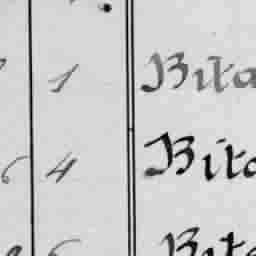 1 Bita
6 4 Bita
Bita